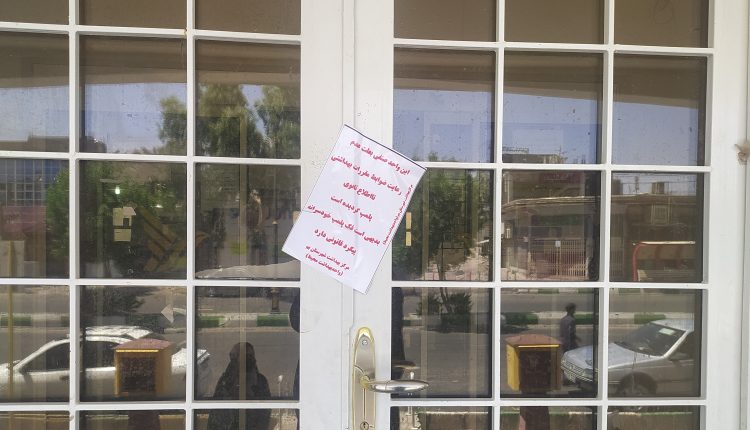 این واحد صنفی بعلت عدم
رعایت ضوابط مقررات بهداشتی
تااطلاع ثانوی
پلمب گردیده است
بدیهی است فک پلمب خودسرانه
پیگرد قانونی دارد
مرکز بهداشت شهرستان بم
(واحدبهداشت محیط)